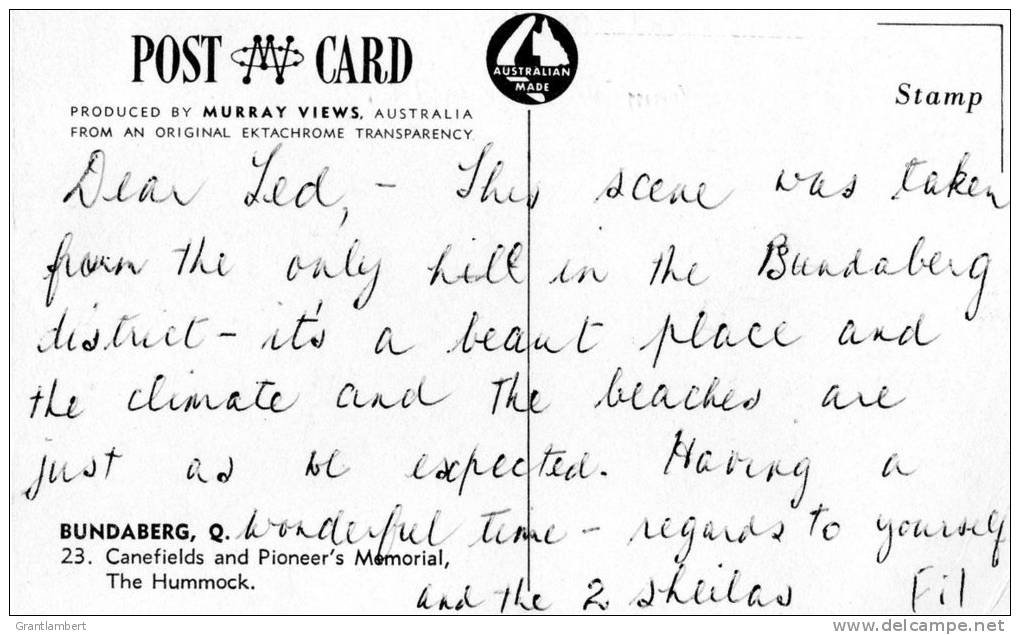 POST CARD
AUSTRALIAN
MADE
PRODUCED BY MURRAY VIEWS, AUSTRALIA
FROM AN ORIGINAL EKTACHROME TRANSPARENCY
Stamp
Dear Ted, - This scene was taken
from the only hill in the Bundaberg
district - it's a beaut place and
the climate and the beaches are
just as we expected. Having a
wonderful time - regards to yourself
and the 2 sheilas Fil
BUNDABERG, Q.
23. Canefields and Pioneer's Memorial,
The Hummock.
Grantlambert
delcampe.net